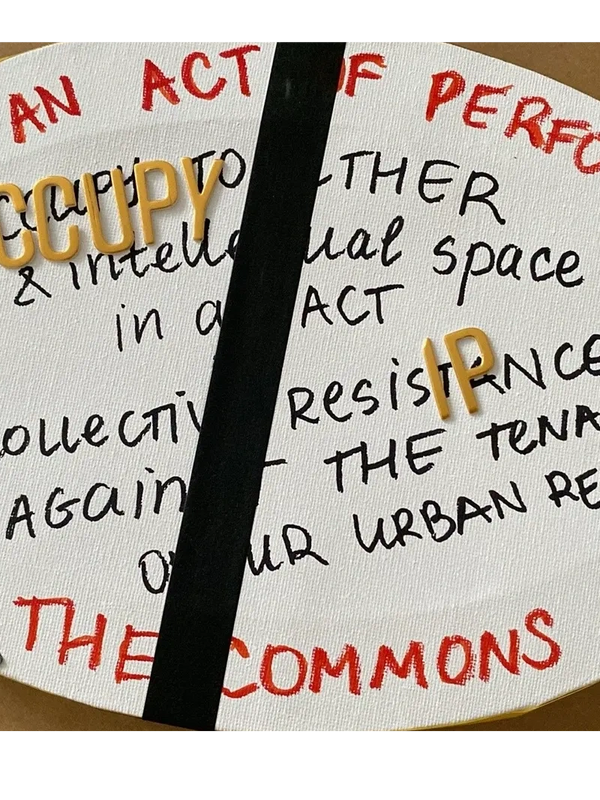 AN ACT OF PERFO
CCUPY
TO THER
& intelle ual space
in a ACT
IP
ollecti Resistance
AGain THE TENA
O UR URBAN RE
THE COMMONS